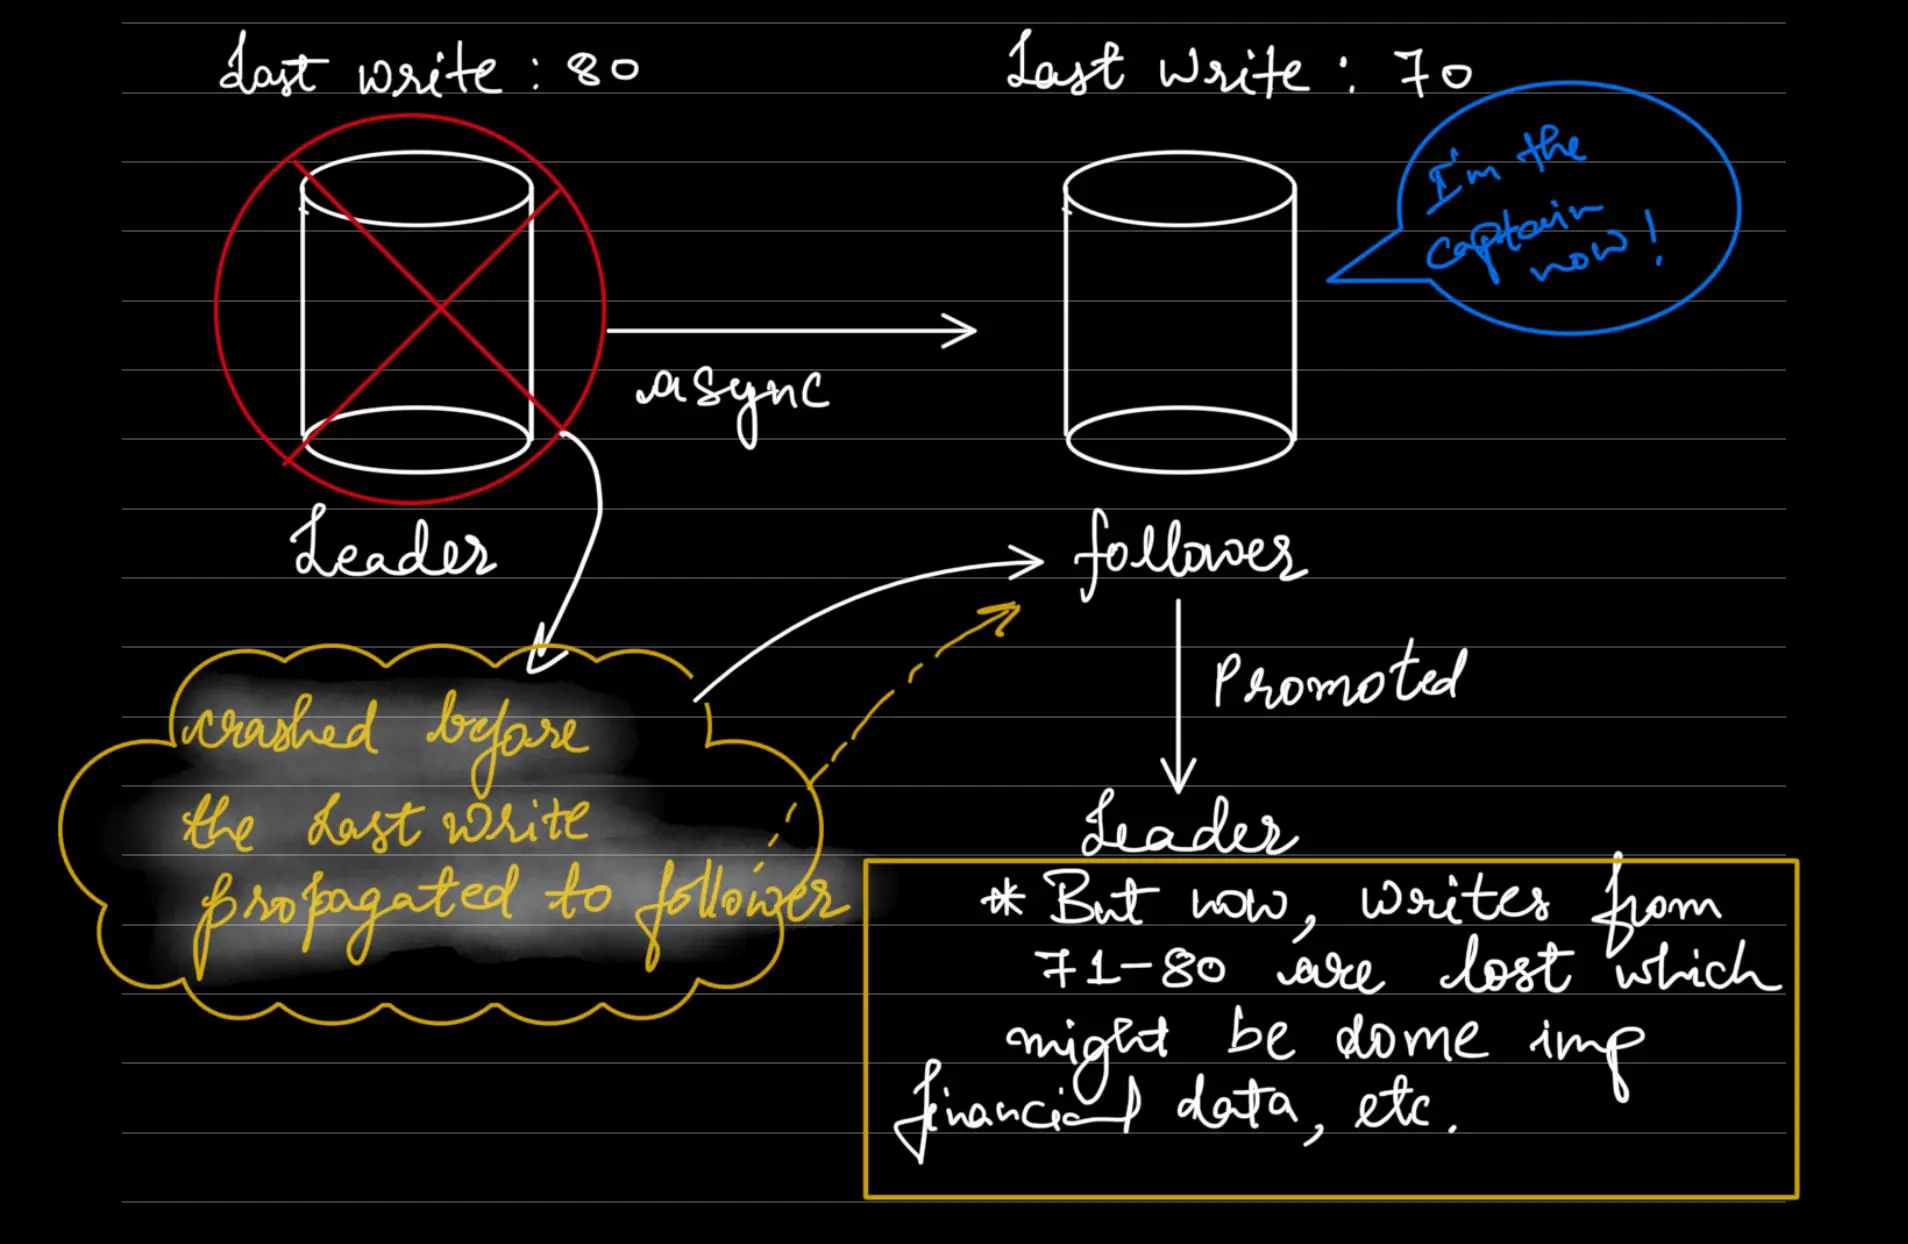 Last write : 80
Last Write : 70
I'm the
captain
now!
async
Leader
follower
Promoted
crashed before
the Last write
propagated to follower
Leader
* But now, writes from
71-80 are lost which
might be dome imp
financial data, etc.